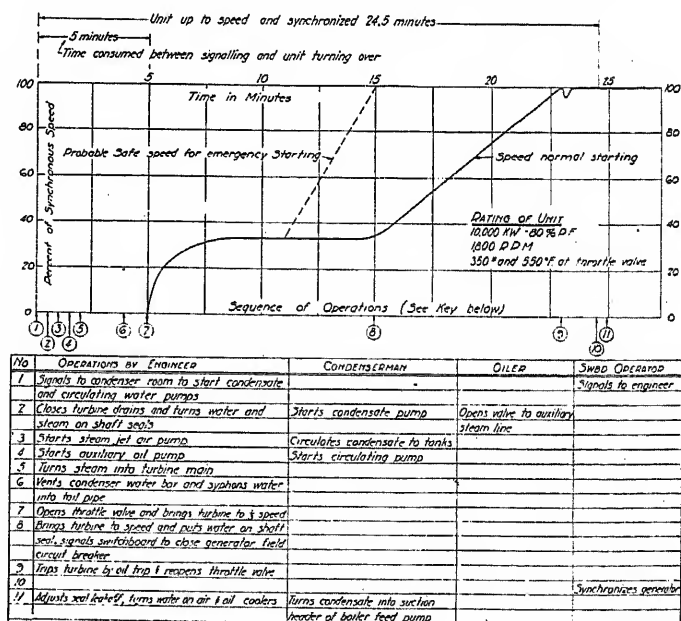 Unit up to speed and synchronized 24.5 minutes
5 minutes
Time consumed between signalling and unit turning over
5 10 15 20 25
100 100
Time in Minutes
80 80
Percent of Synchronous Speed
Probable Safe speed for emergency Starting
Speed normal starting
60 60
40 40
RATING OF UNIT
10,000 KW - 80% P.F.
1800 R.P.M
350# and 550°F. at throttle valve
20 20
0 0
Sequence of Operations (See Key below)
1 2 3 4 5 6 7 8 9 10 11
No OPERATIONS BY ENGINEER CONDENSERMAN OILER SWBD OPERATOR
1 Signals to condenser room to start condensate Signals to engineer
and circulating water pumps
2 Closes turbine drains and turns water and Starts condensate pump Opens valve to auxiliary
steam on shaft seals steam line
3 Starts steam jet air pump Circulates condensate to tanks
4 Starts auxiliary oil pump Starts circulating pump
5 Turns steam into turbine main
6 Vents condenser water bar and syphons water
into tail pipe
7 Opens throttle valve and brings turbine to speed
8 Brings turbine to speed and puts water on shaft
seal, signals switchboard to close generator field
circuit breaker
9 Trips turbine by oil trip & reopens throttle valve
10 Synchronizes generator
11 Adjusts seal leakoff, turns water on air & oil coolers Turns condensate into suction
header of boiler feed pump